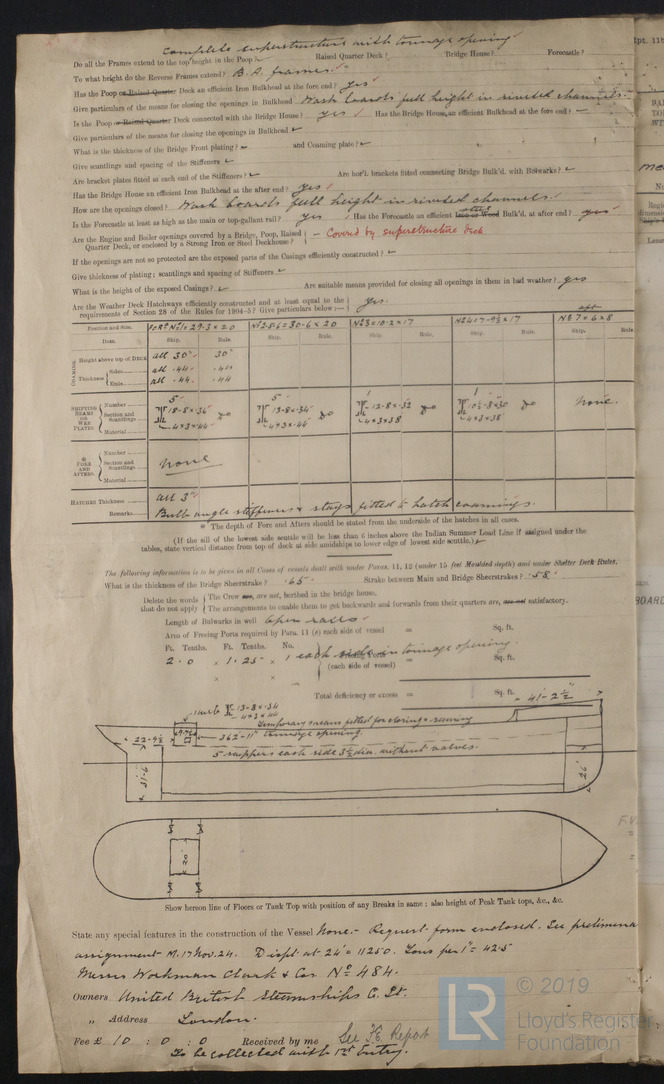 Complete superstructure with tonnage opening
Do all the Frames extend to the top height in the Poop? Raised Quarter Deck? Bridge House? Forecastle?
To what height do the Reverse Frames extend? B.A. frames.
Has the Poop or Raised Quarter Deck an efficient Iron Bulkhead at the fore end? yes
Give particulars of the means for closing the openings in Bulkhead Wash boards full height in riveted channels.
Is the Poop or Raised Quarter Deck connected with the Bridge House? yes Has the Bridge House, an efficient Bulkhead at the fore end? -
Give particulars of the means for closing the openings in Bulkhead
What is the thickness of the Bridge Front plating? and Coaming plate?
Give scantlings and spacing of the Stiffeners
Are bracket plates fitted at each end of the Stiffeners? Are hor'l. brackets fitted connecting Bridge Bulk'd. with Bulwarks?
Has the Bridge House an efficient Iron Bulkhead at the after end? yes
How are the openings closed? Wash boards full height in riveted channels.
Is the Forecastle at least as high as the main or top-gallant rail? yes Has the Forecastle an efficient Iron or Wood steel Bulk'd. at after end? yes
Are the Engine and Boiler openings covered by a Bridge, Poop, Raised Quarter Deck, or enclosed by a Strong Iron or Steel Deckhouse? - Covered by superstructure deck
If the openings are not so protected are the exposed parts of the Casings efficiently constructed?
Give thickness of plating; scantlings and spacing of Stiffeners
What is the height of the exposed Casings? Are suitable means provided for closing all openings in them in bad weather? yes
Are the Weather Deck Hatchways efficiently constructed and at least equal to the requirements of Section 28 of the Rules for 1904-5? Give particulars below:— yes.
Position and Size. For'd No 1 = 29.3 x 20 No 2.5.6 = 30.6 x 20 No 3 = 18.2 x 17 No 4 = 7-9½ x 17 aft No 7 = 6 x 8
Item. Ship. Rule. Ship. Rule. Ship. Rule. Ship. Rule. Ship. Rule.
COAMING Height above top of DECK all 30" 30"
Thickness Sides all .44 .44
Ends all .44 .44
SHIFTING BEAMS OR WEB PLATES. Number 5 5 1 1 none.
Section and Scantlings 13-8 x .34 do 13-8 x .34 do 13-8 x .32 do 10½-8 x 30 do
4x3x.44 4x3x.44 4x3x38 4x3x38
Material
* FORE AND AFTERS. Number
Section and Scantlings none
Material
HATCHES Thickness all 3"
Remarks. Bulb angle stiffeners & stays fitted to hatch coamings.
* The depth of Fore and Afters should be stated from the underside of the hatches in all cases.
(If the sill of the lowest side scuttle will be less than 6 inches above the Indian Summer Load Line if assigned under the
tables, state vertical distance from top of deck at side amidships to lower edge of lowest side scuttle.)
The following information is to be given in all Cases of vessels dealt with under Paras. 11, 12 (under 15 feet Moulded depth) and under Shelter Deck Rules.
What is the thickness of the Bridge Sheerstrake? .65" Strake between Main and Bridge Sheerstrakes? .58"
Delete the words that do not apply The Crew are, are not, berthed in the bridge house.
The arrangements to enable them to get backwards and forwards from their quarters are, are not satisfactory.
Length of Bulwarks in well Open rails
Area of Freeing Ports required by Para. 11 (e) each side of vessel = Sq. ft.
Ft. Tenths. Ft. Tenths. No.
2.0 x 1.25 x 1 each side in tonnage opening.
Freeing Ports (each side of vessel) = Sq. ft.
x x
Total deficiency or excess = Sq. ft.
13-8 x .34
4x3x44
41'-2½"
Temporary means fitted for closing & securing
362'-11" tonnage opening
22-9½
5 scuppers each side 3½ dia. without valves.
20
Show hereon line of Floors or Tank Top with position of any Breaks in same; also height of Peak Tank tops, &c., &c.
State any special features in the construction of the Vessel None.- Request form enclosed. See prelimina
assignment M. 17 Nov. 24. Displt at 24' = 11250. Tons per 1" = 42.5
Messrs Workman Clark & Co's No 484.
Owners United British Steamships Co. Lt.
„ Address London.
Fee £ 10 : 0 : 0 Received by me See F.E. Report
To be collected with 1st Entry.
© 2019
LR
Lloyd's Register
Foundation